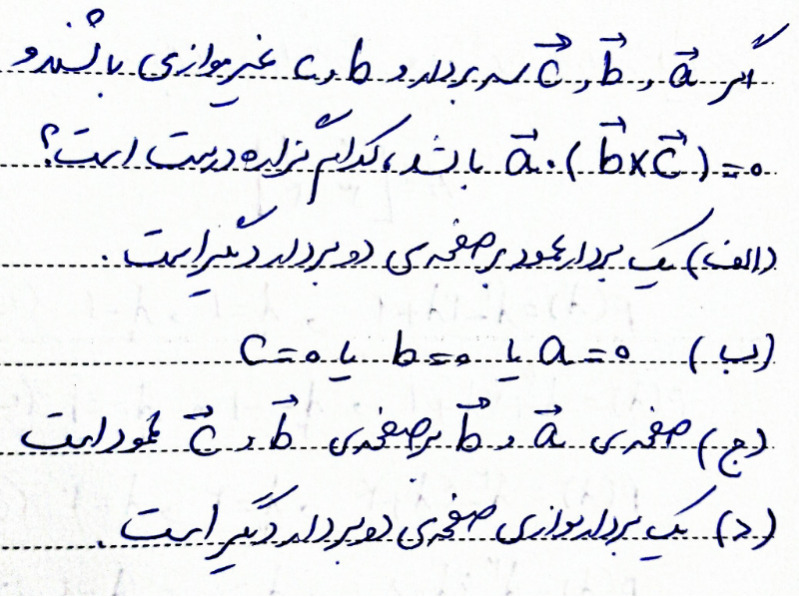 اگر a⃗ و b⃗ و c⃗ سه بردار و b و c غیرموازی باشند و
a⃗.(b⃗×c⃗)=۰ باشد، کدام گزاره درست است؟
(الف) یک بردار عمود بر صفحه‌ی دو بردار دیگر است.
(ب) a=۰ یا b=۰ یا c=۰
(ج) صفحه‌ی a⃗ و b⃗ بر صفحه‌ی b⃗ و c⃗ عمود است
(د) یک بردار موازی صفحه‌ی دو بردار دیگر است.